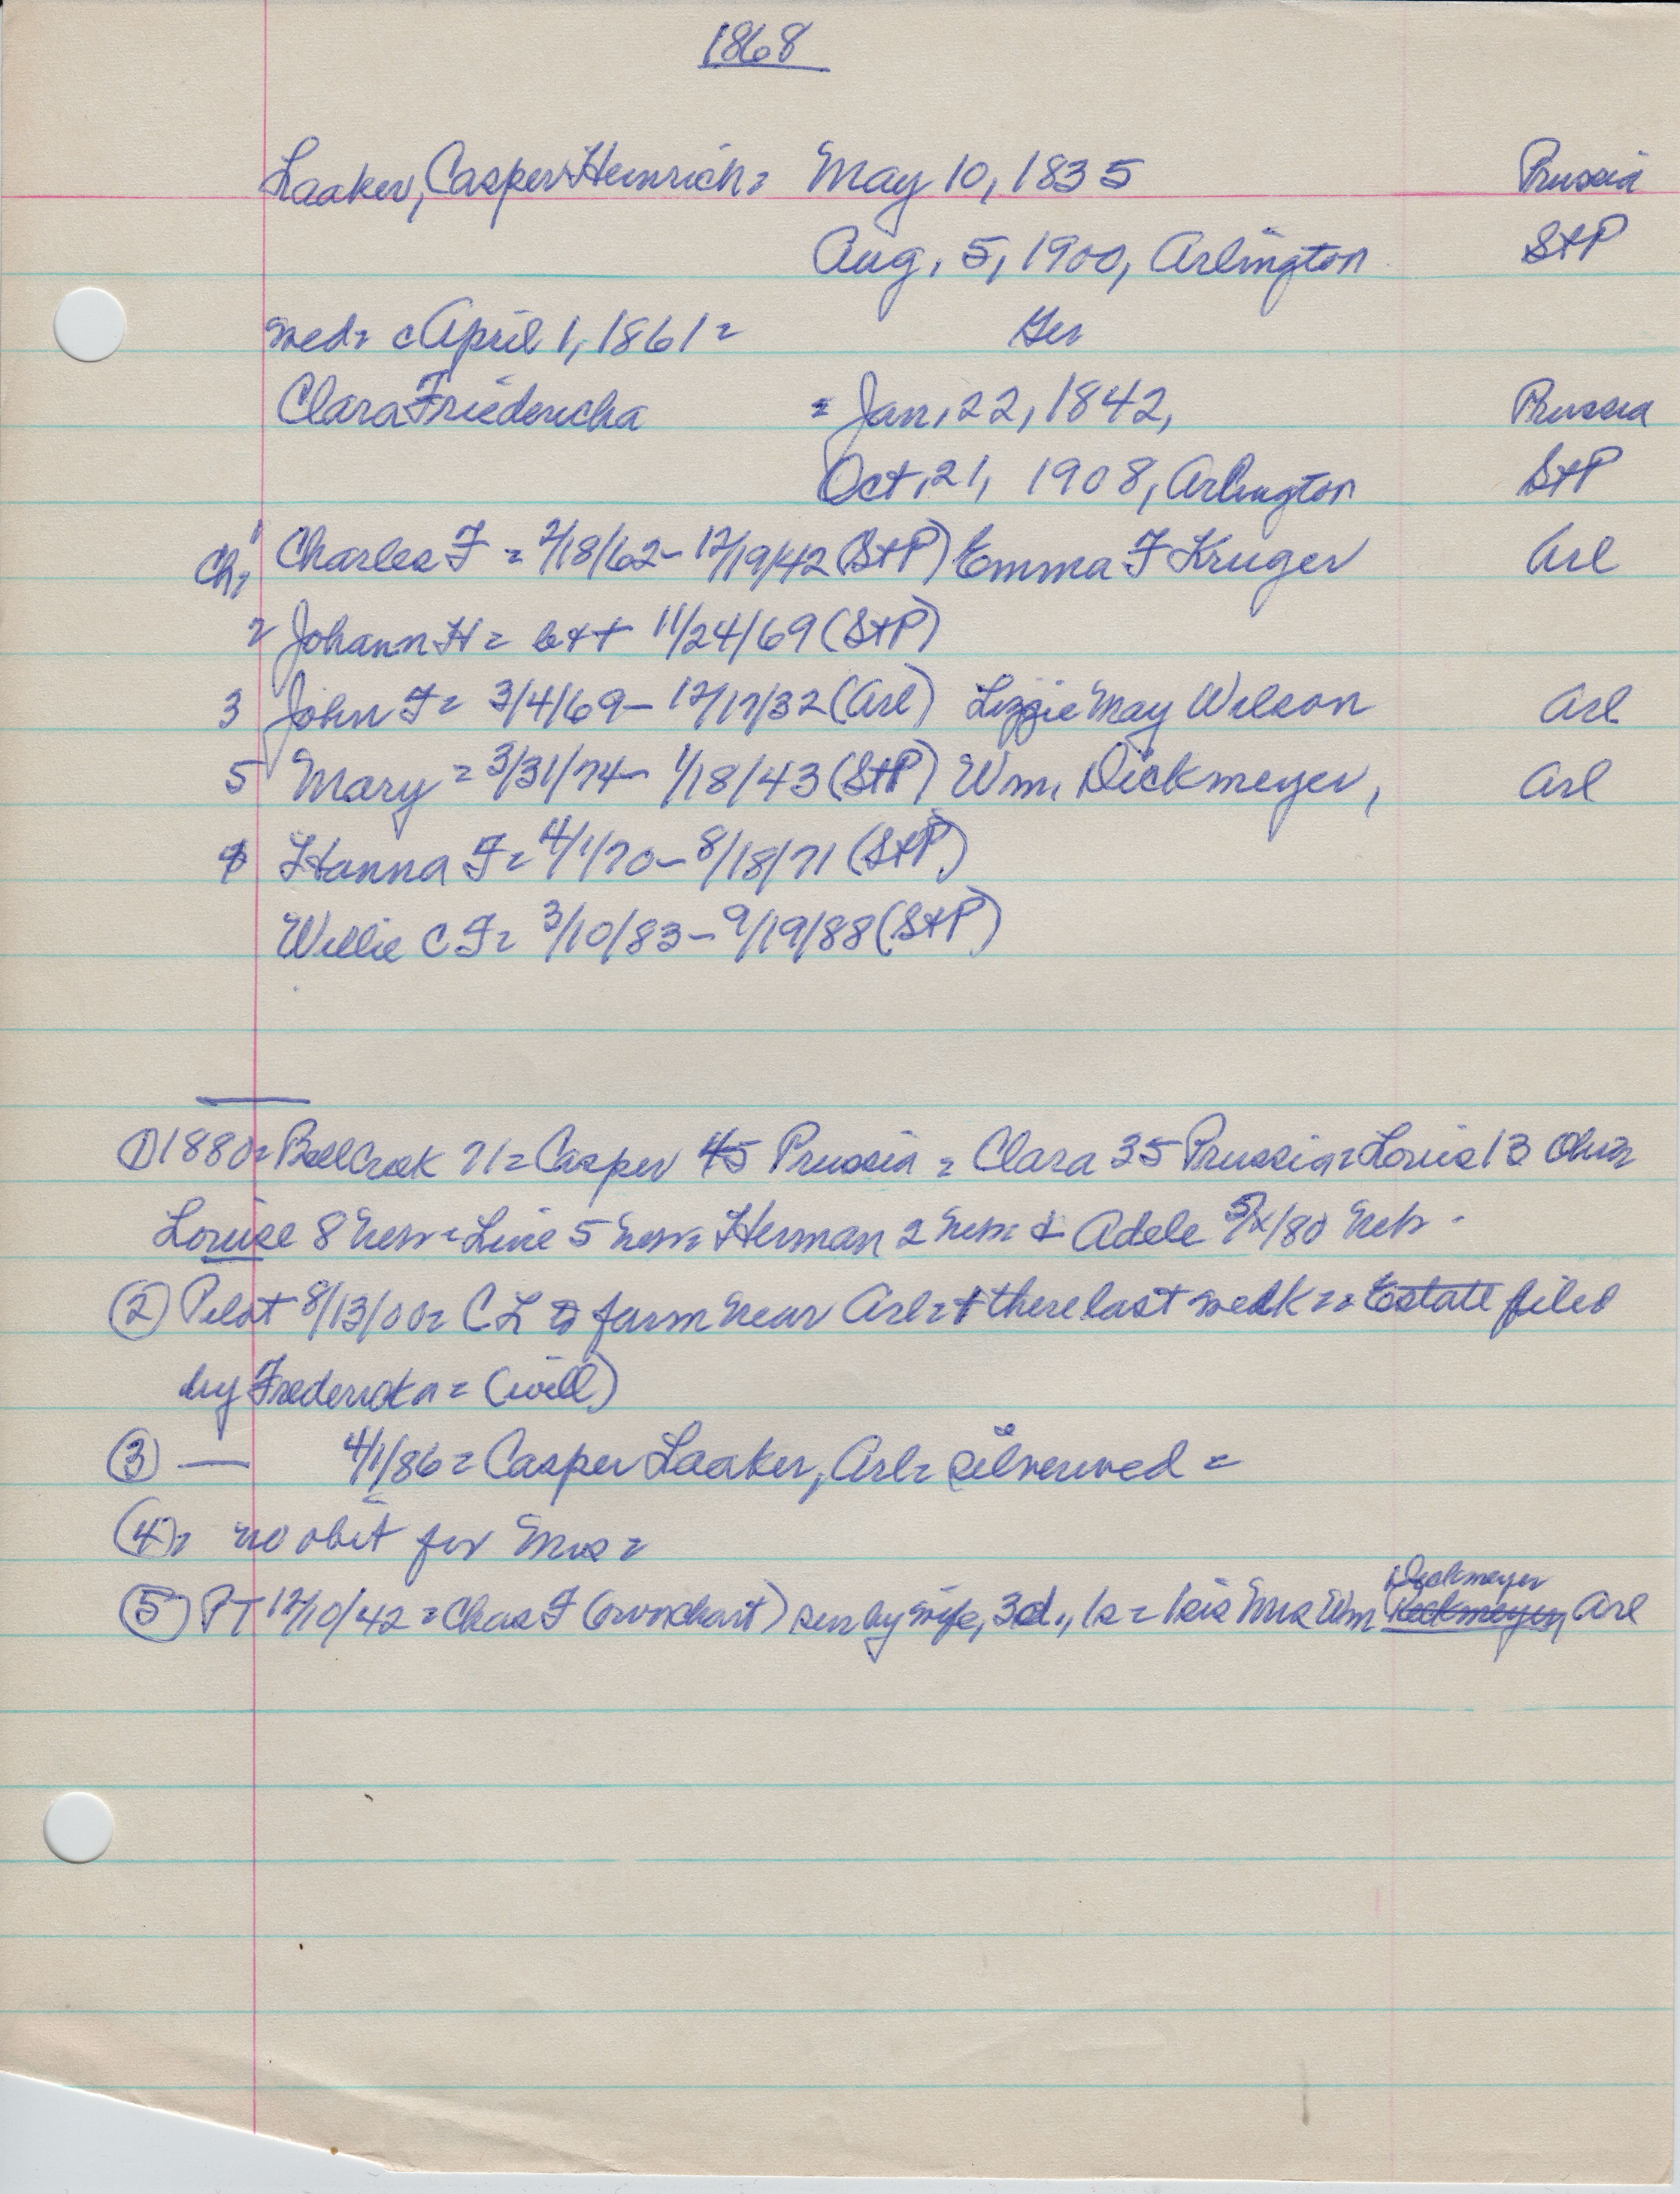 1868
Laaker, Casper Heinrich = May 10, 1835 Prussia
Aug. 5, 1900, Arlington StP
wed = c April 1, 1861 = Ger
Clara Friedericha = Jan. 22, 1842, Prussia
Oct. 21, 1908, Arlington StP
Ch, 1 Charles F = 2/18/62 - 12/19/42 (StP) Emma F Kruger Arl
2 Johann H = b + t 11/24/69 (StP)
3 John F = 3/4/69 - 12/17/32 (Arl) Lizzie May Wilson Arl
5 Mary = 3/31/74 - 1/18/43 (StP) Wm. Dickmeyer, Arl
4 Hanna F = 4/1/70 - 8/18/71 (StP)
Willie C F = 3/10/83 - 9/19/88 (StP)
① 1880 = Bell Creek 71 = Casper 45 Prussia = Clara 35 Prussia = Louis 13 Ohio
Louise 8 Neb = Line 5 Neb = Herman 2 Neb = + Adele 5/x/80 Neb -
② Pilot 8/13/00 = C L farm near Arl = + there last week = = Estate filed
by Fredericka = (will)
③ — 4/1/86 = Casper Laaker, Arl = silverwed =
④ = no obit for Mrs =
⑤ PT 12/10/42 = Chas F (own chart) sur by wife, 3d., 1s = 1sis Mrs Wm Dickmeyer Arl